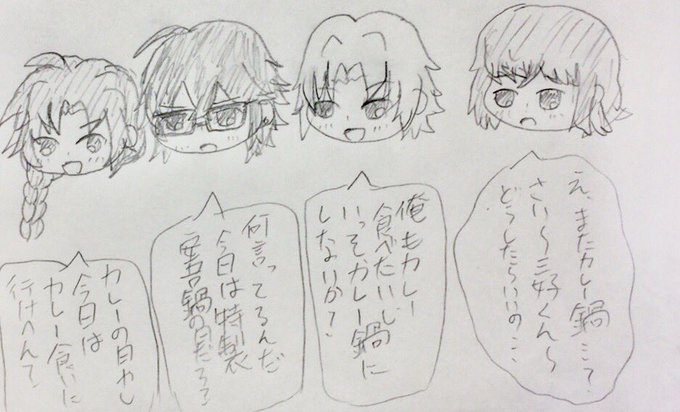 カレーの日やし
今日は
カレー食いに
行けへん?
何言ってるんだ
今日は特製
安吾鍋の日だろう?
俺もカレー
食べたいし
いっそカレー鍋に
しないか?
え、またカレー鍋…?
さい〜三好くん〜
どうしたらいいの…